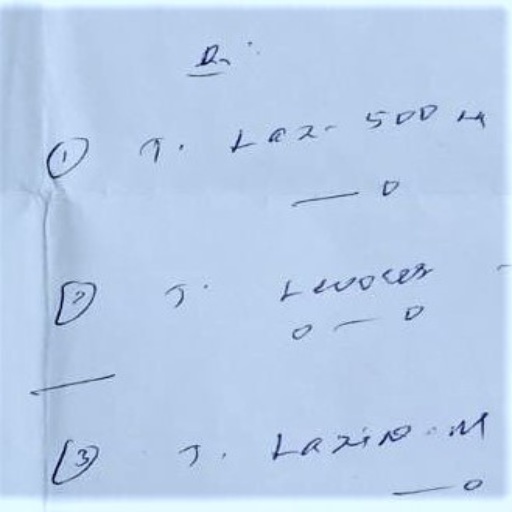 Rx:
① T. Lax-500 M
— 0
② T. Levocet -
0 — 0
③ T. Lazine-M
— 0